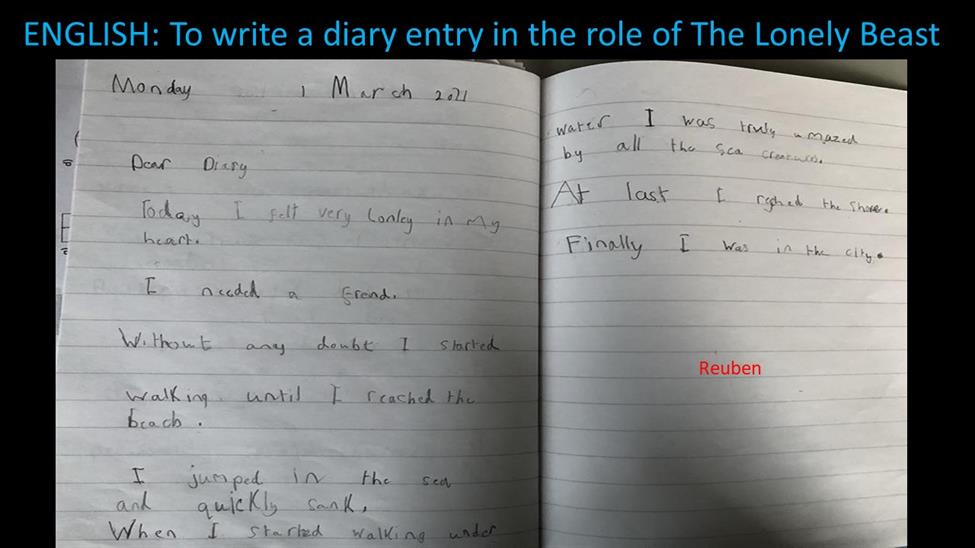 ENGLISH: To write a diary entry in the role of The Lonely Beast
Monday 1 March 2021
Dear Diary
Today I felt very Lonley in my
heart.
I needed a frend.
Without any doubt I started
walking until I reached the
beach.
I jumped in the sea
and quickly sank,
When I started walking under
water I was truly amazed
by all the sea
At last I the shore.
Finally I was in the city.
Reuben